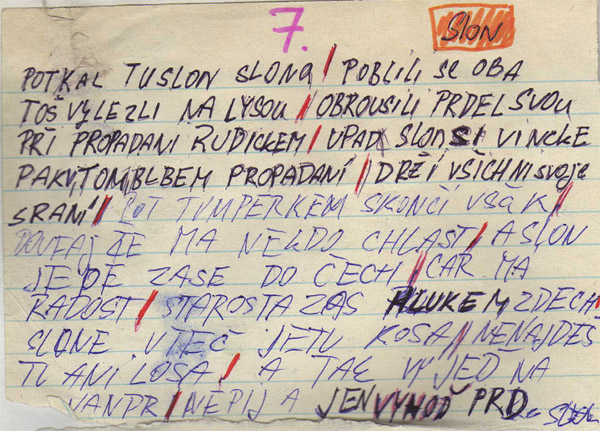 7.
Slon
POTKAL TU SLON SLONA / POBLILI SE OBA
TOŠ VYLEZLI NA LYSOU / OBROUSILI PRDEL SVOU
PŘI PROPADANI RUDICKEM / UPAD SLON SI V
PAK V TOM BLBEM PROPADANÍ / DRŽÍ VŠICHNI svoje
SRANÍ / POT TYMPERKEM SKONČÍ VŠAK /
ŽE MA NEKDO CHLAST / A SLON
JEDE ZASE DO ČECH / CAR MA
RADOST / STAROSTA ZAS HLUKEM ZDECH
SLONE UTEČ JETU KOSA / NENAJDES
TU ANI LOSA / A TAK VYJEĎ NA
VANDR / NEPIJ A JEN VYHOĎ PRD